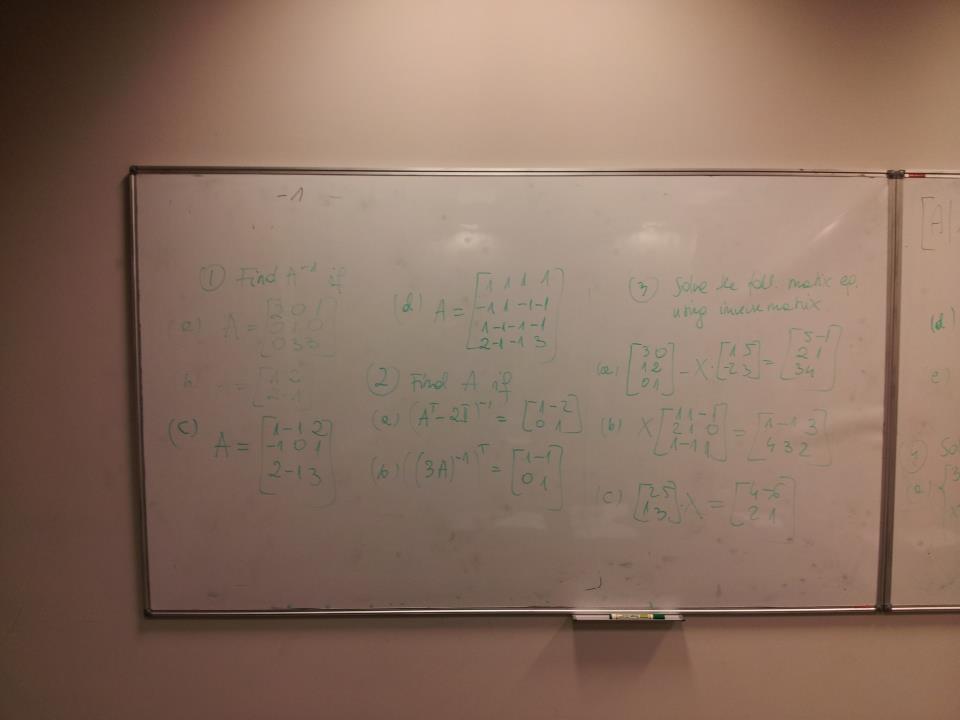 -1
① Find A⁻¹ if
(a) A = [
0 3 3]
[1 2
2 -1]
(c) A = [1 -1 2
-1 0 1
2 -1 3]
(d) A = [1 1 1 1
-1 1 -1 -1
1 -1 -1 -1
2 -1 -1 3]
② Find A if
(a) (Aᵀ - 2I)⁻¹ = [1 -2
0 1]
(b) ((3A)⁻¹)ᵀ = [1 -1
0 1]
③ Solve the foll. matrix eq.
using inverse matrix.
(a) [3 0
1 2
0 1] - X · [1 5
-2 3] = [5 -1
2 1
3 4]
(b) X [1 1 -1
2 1 0
1 -1 1] = [1 -1 3
4 3 2]
(c) [2 5
1 3] · X = [4 -6
2 1]
[A|
(d)
e)
④ Sol
(a) {3